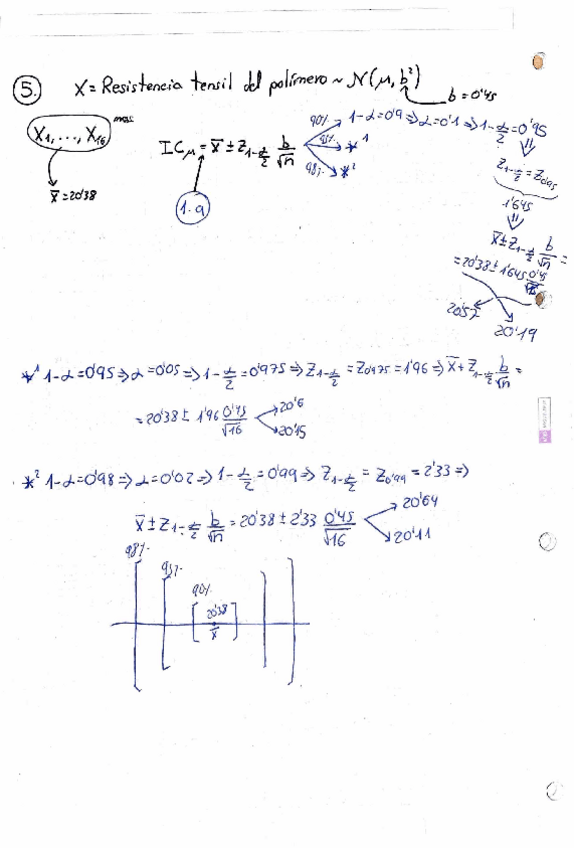 5. X = Resistencia tensil del polímero ~ N(μ, b²)
b = 0'45
X₁, ..., X₁₆ mas
x̄ = 20'38
IC_μ = x̄ ± Z_{1-α/2} b/√n
1.a
90% 1-α = 0'9 ⇒ α = 0'1 ⇒ 1-α/2 = 0'95
95% *¹
98% *²
⇓
Z_{1-α/2} = Z_{0'95}
1'645
⇓
x̄ ± Z_{1-α/2} b/√n =
= 20'38 ± 1'645 0'45/√16
20'57
20'19
*¹ 1-α = 0'95 ⇒ α = 0'05 ⇒ 1-α/2 = 0'975 ⇒ Z_{1-α/2} = Z_{0'975} = 1'96 ⇒ x̄ ± Z_{1-α/2} b/√n =
= 20'38 ± 1'96 0'45/√16
20'6
20'15
*² 1-α = 0'98 ⇒ α = 0'02 ⇒ 1-α/2 = 0'99 ⇒ Z_{1-α/2} = Z_{0'99} = 2'33 ⇒
x̄ ± Z_{1-α/2} b/√n = 20'38 ± 2'33 0'45/√16
20'64
20'11
98%
95%
90%
20'38
x̄